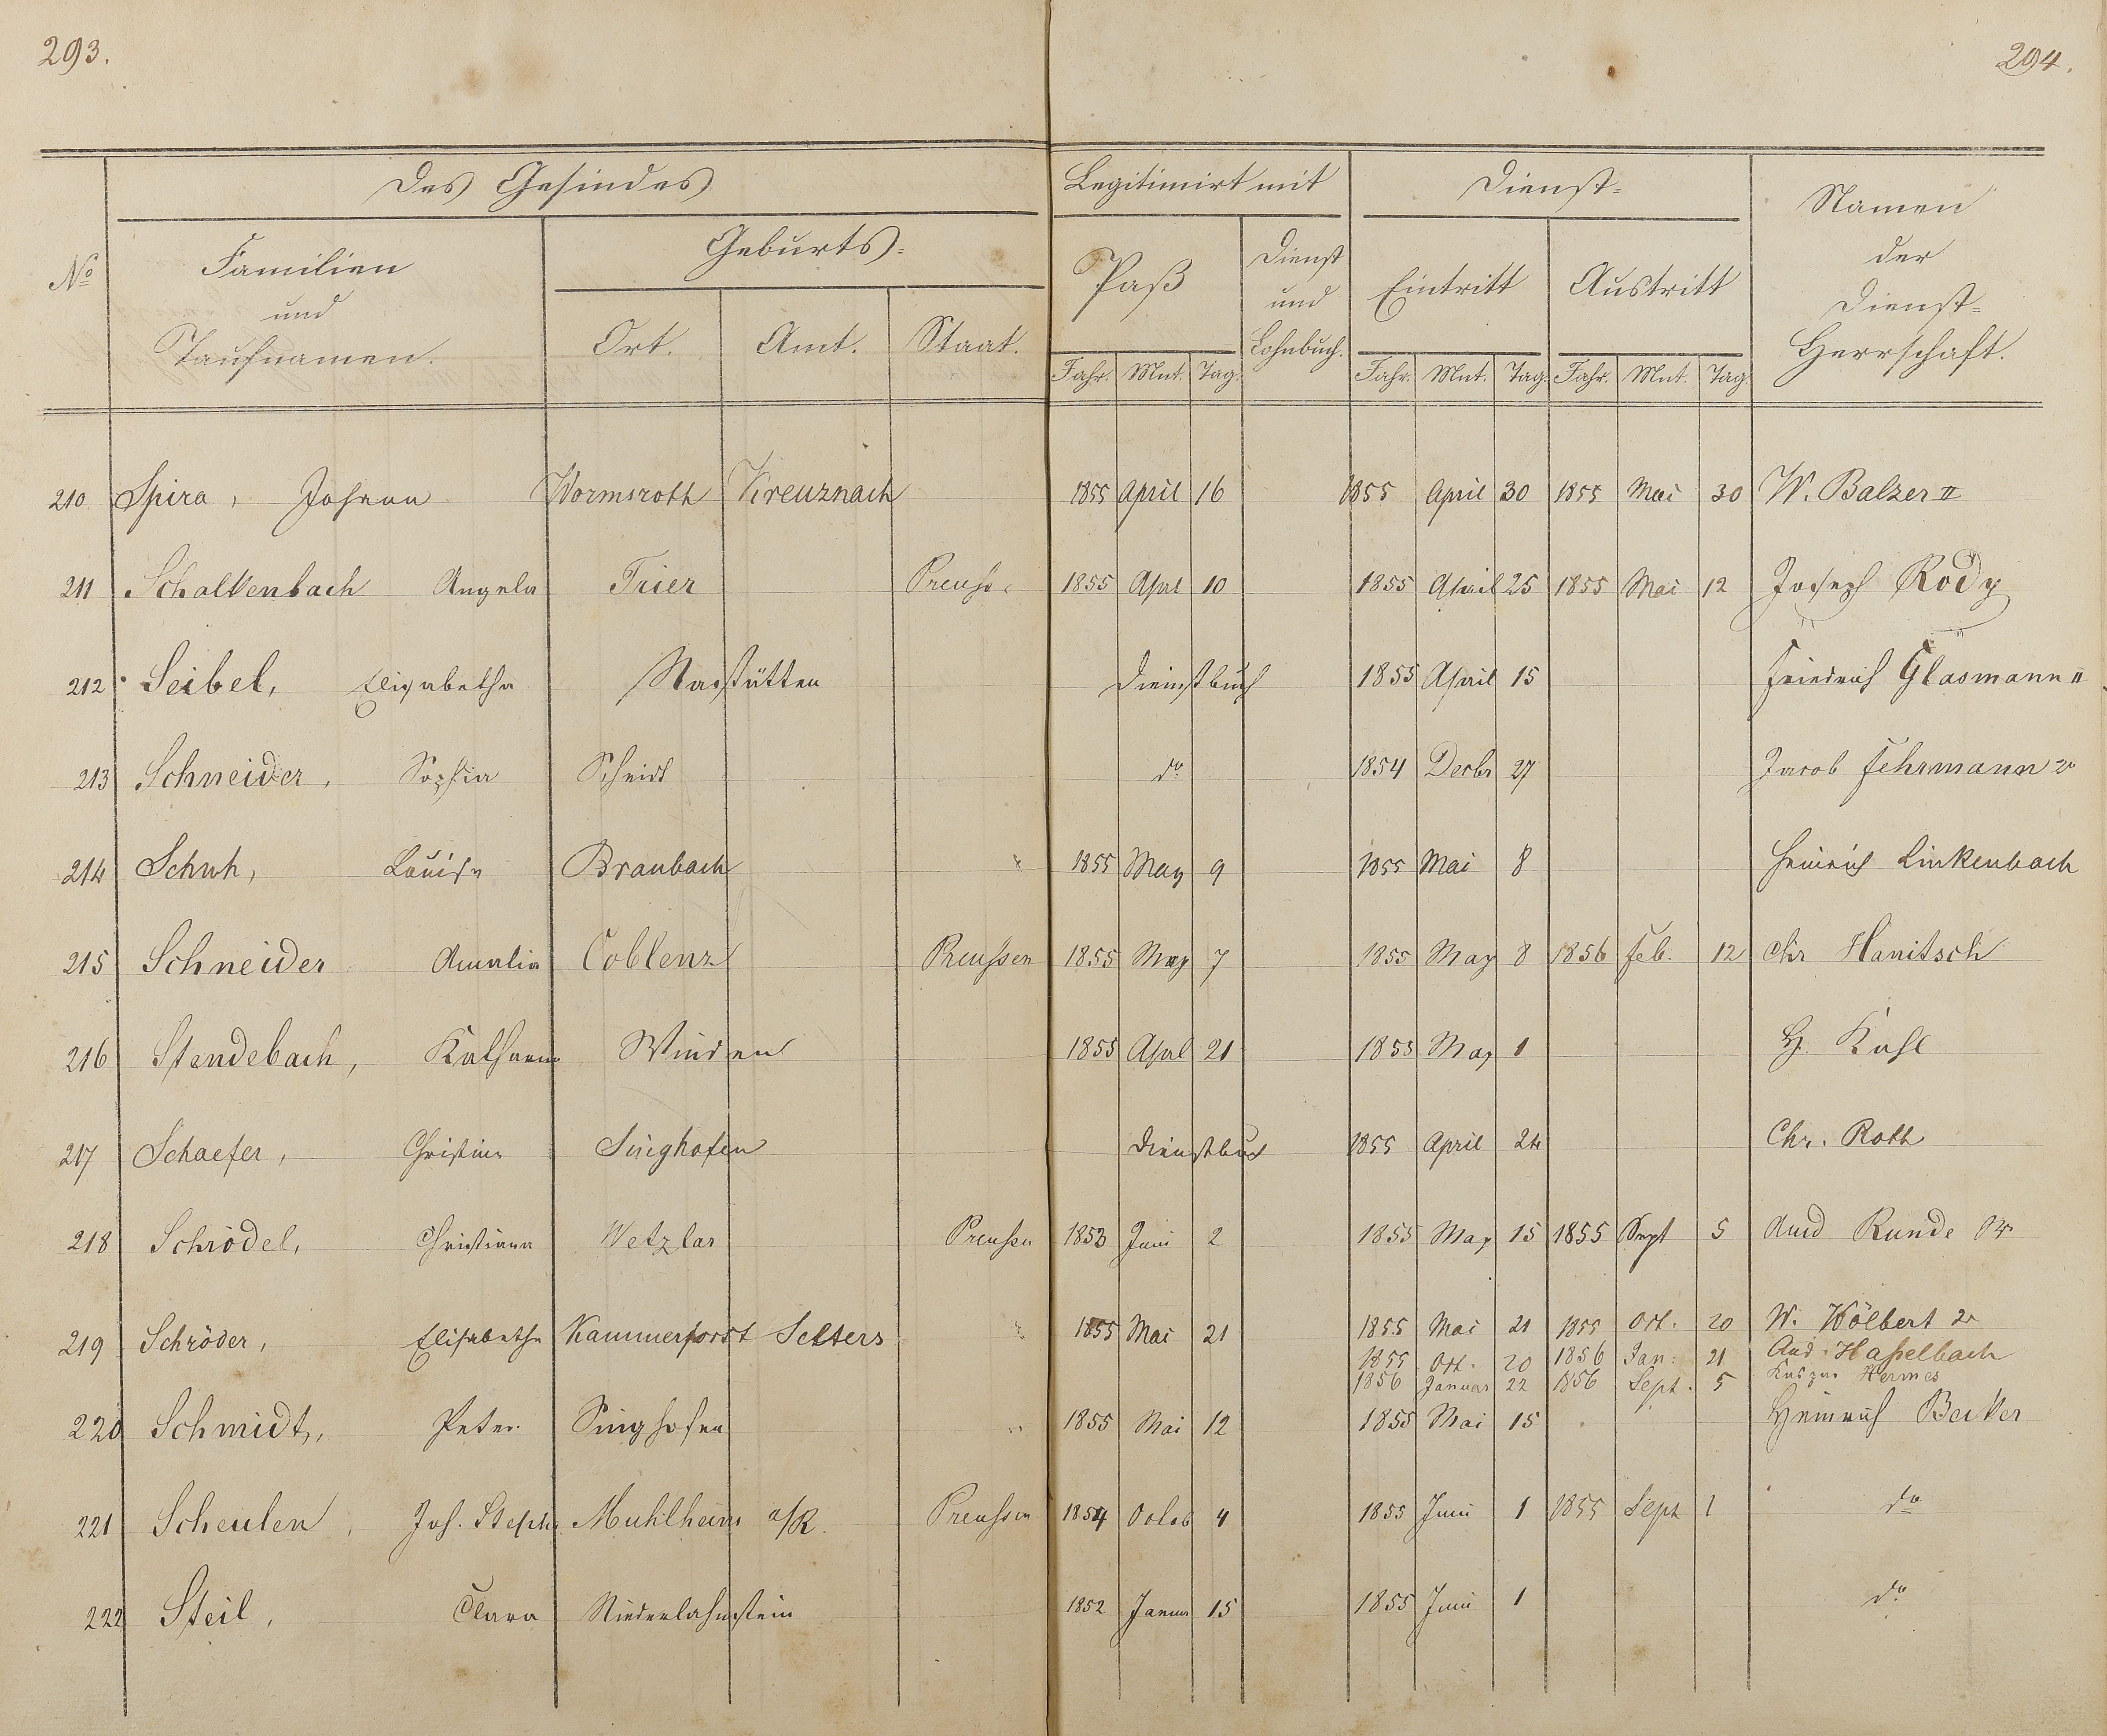 293.
294.
des Gesindes
Legitimirt mit
Dienst-
Namen der Dienst-Herrschaft.
No
Familien und Taufnamen.
Geburts-
Paß
Dienst und Lohnbuch.
Eintritt
Austritt
Ort. Amt. Staat.
Jahr. Mnt. Tag. Jahr. Mnt. Tag. Jahr. Mnt. Tag.
210 Spira, Johann Wormsroth Kreuznach 1855 April 16 1855 April 30 1855 Mai 30 W. Balzer II
211 Schalkenbach Angela Trier Preuß. 1855 Aprl 10 1855 April 25 1855 Mai 12 Joseph Rody
212 Seibel, Elisabetha Nastätten Dienstbuch 1855 April 15 Friedrich Glasmann II
213 Schneider, Sophia Scheidt do 1854 Decbr 27 Jacob Fehrmann 2r
214 Schuh, Louise Braubach " 1855 May 9 1855 Mai 8 Heinrich Linkenbach
215 Schneider Amalia Coblenz Preußen 1855 May 7 1855 May 8 1856 Feb. 12 Chr Hanitsch
216 Stendebach, Katharina Winden 1855 Aprl 21 1855 May 1 H. Kahl
217 Schaefer, Christine Singhofen Dienstbuch 1855 April 24 Chr. Roth
218 Schrödel, Christiana Wetzlar Preußen 1853 Juni 2 1855 May 15 1855 Sept 5 And Runde
219 Schröder, Elisabetha Kammerforst Selters " 1855 Mai 21 1855 Mai 21 1855 Oct. 20 W. Wölbert 2r
1855 Oct. 20 1856 Jan: 21 And. Haßelbach
1856 Januar 22 1856 Sept. 5 Kaspar Hermes
220 Schmidt, Peter Singhofen " 1855 Mai 12 1855 Mai 15 Heinrich Becker
221 Scheulen, Joh. Steph. Muhlheim a/R. Preußen 1854 Octob 4 1855 Juni 1 1855 Sept 1 do
222 Steil, Clara Niederlahnstein 1852 Januar 15 1855 Juni 1 do